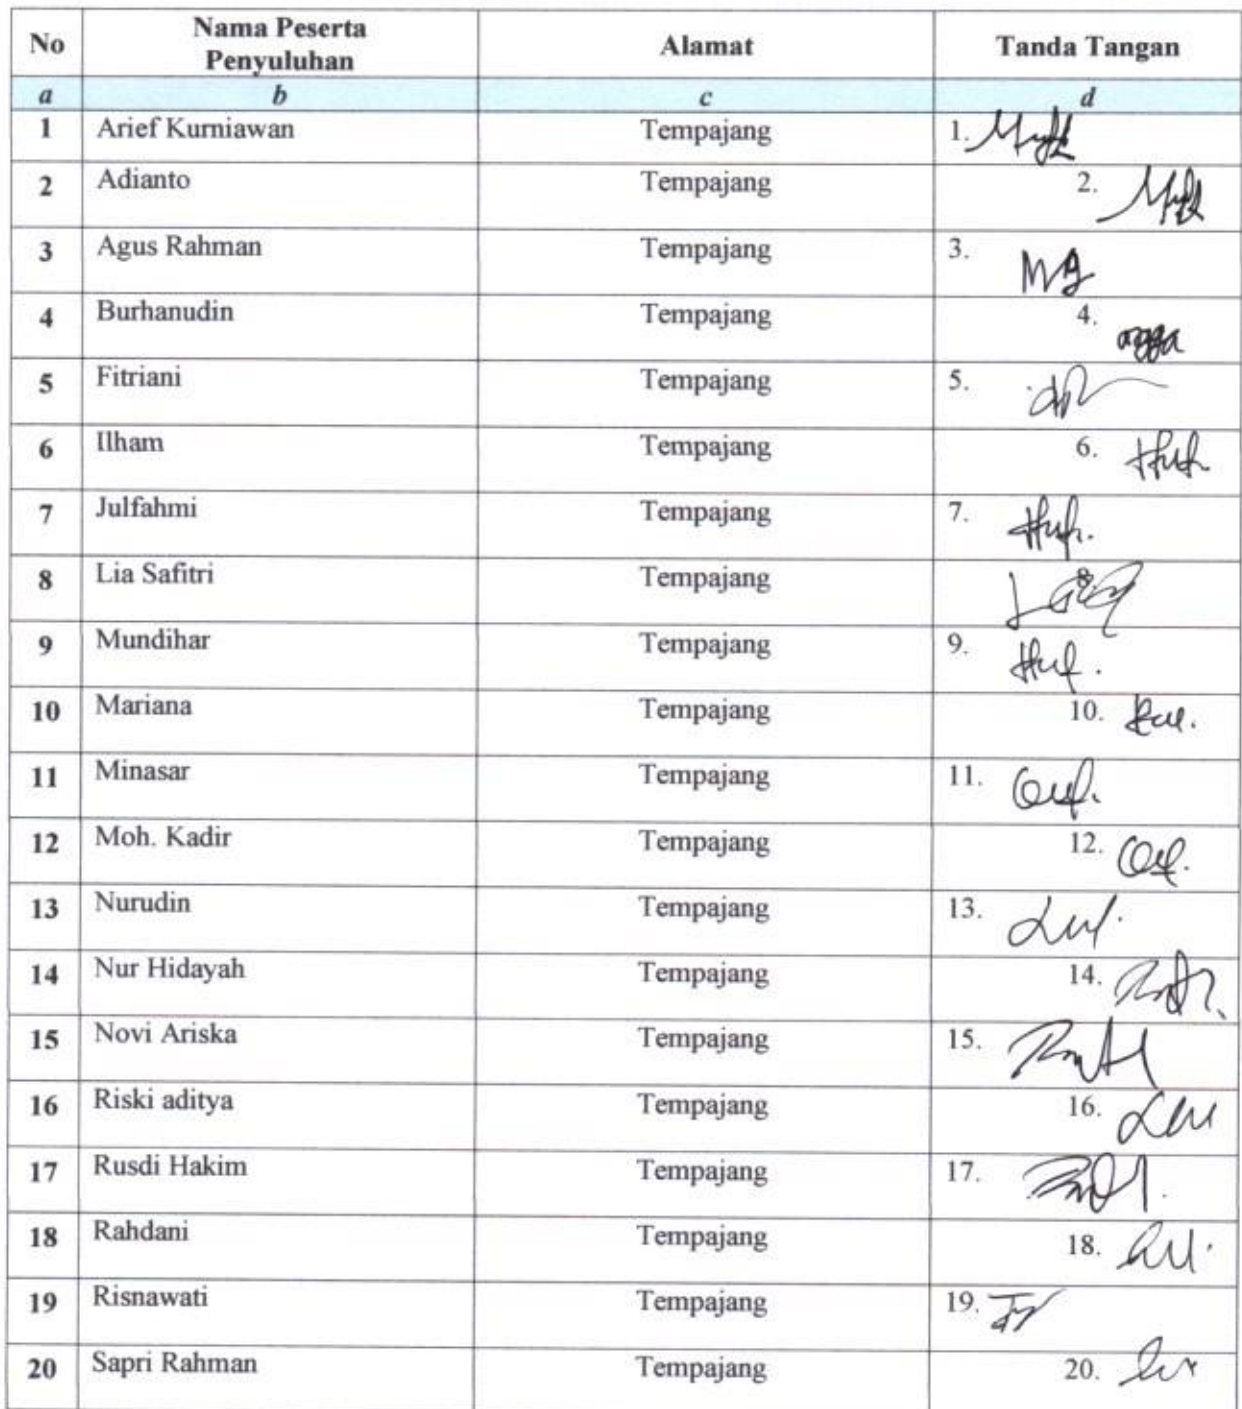 No Nama Peserta Penyuluhan Alamat Tanda Tangan
a b c d
1 Arief Kurniawan Tempajang 1.
2 Adianto Tempajang 2.
3 Agus Rahman Tempajang 3.
4 Burhanudin Tempajang 4. angga
5 Fitriani Tempajang 5.
6 Ilham Tempajang 6.
7 Julfahmi Tempajang 7.
8 Lia Safitri Tempajang 8.
9 Mundihar Tempajang 9.
10 Mariana Tempajang 10.
11 Minasar Tempajang 11.
12 Moh. Kadir Tempajang 12.
13 Nurudin Tempajang 13.
14 Nur Hidayah Tempajang 14.
15 Novi Ariska Tempajang 15.
16 Riski aditya Tempajang 16.
17 Rusdi Hakim Tempajang 17.
18 Rahdani Tempajang 18.
19 Risnawati Tempajang 19.
20 Sapri Rahman Tempajang 20.